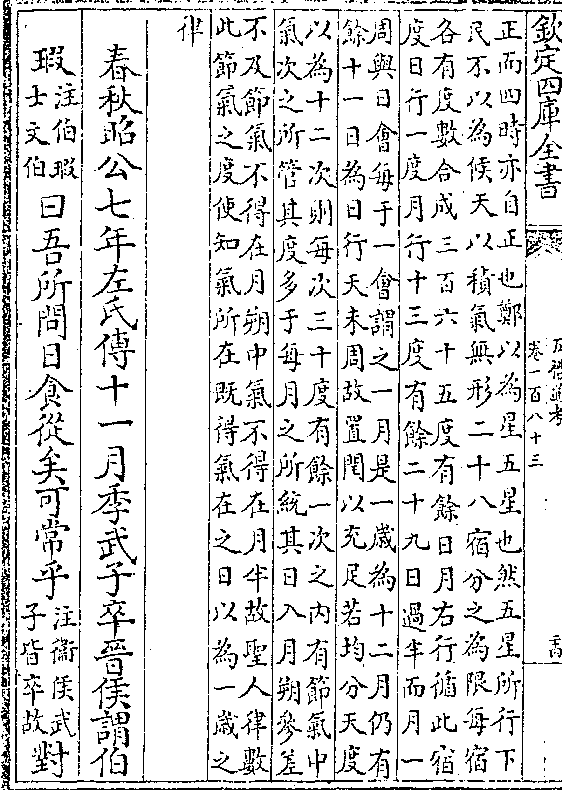 欽定四庫全書
五禮通考
卷一百八十三
正而四時亦自正也鄭以為星五星也然五星所行下
民不以為候天以積氣無形二十八宿分之為限每宿
各有度數合成三百六十五度有餘日月右行循此宿
度日行一度月行十三度有餘二十九日過半而月一
周與日會每于一會謂之一月是一歲為十二月仍有
餘十一日為日行天未周故置閏以充足若均分天度
以為十二次則每次三十度有餘一次之內有節氣中
氣次之所管其度多于每月之所統其日入月朔參差
不及節氣不得在月朔中氣不得在月半故聖人律數
此節氣之度使知氣所在既得氣在之日以為一歲之
律
春秋昭公七年左氏傳十一月季武子卒晉侯謂伯
瑕注伯瑕士文伯曰吾所問日食從矣可常乎注衞侯武子皆卒故對